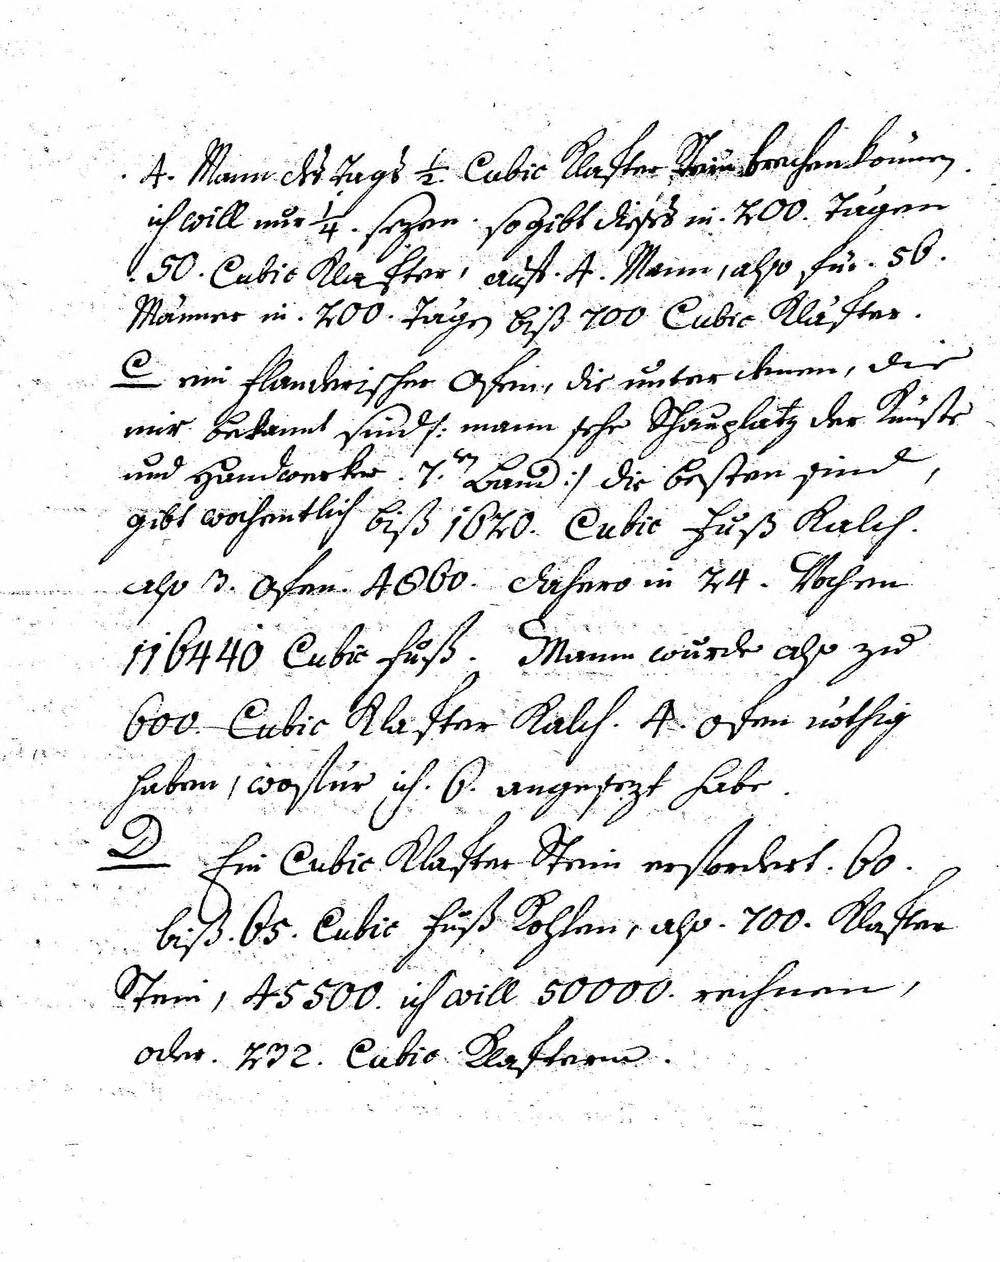 4. Mann des Tags ½ Cubic Klafter Stein brechen können,
ich will nur ¼. sezen. so gibt dieses in. 200. Tägen
50. Cubic Klafter, auf. 4. Mann, also für. 56.
Männer in. 200. Tägen biß 700 Cubic Klafter.
C ein flanderischer Ofen, die unter denen, die
mir bekannt sind /: mann sehe Schauplatz der Künste
und Handwerker. 7.ter Band :/ die besten sind,
gibt wochentlich biß 1620. Cubic Fuß Kalch.
also 3. Ofen. 4860. dahero in 24. Wochen
116440 Cubic Fuß. Mann wurde also zu
600 Cubic Klafter Kalch. 4. Ofen nöthig
haben, wofür ich. 6. angesezt habe.
D Ein Cubic Klafter Stein erfordert. 60.
biß. 65. Cubic Fuß Kohlen, also. 700. Klafter
Stein, 45500. ich will 50000. rechnen,
oder. 232. Cubic Klaftern.